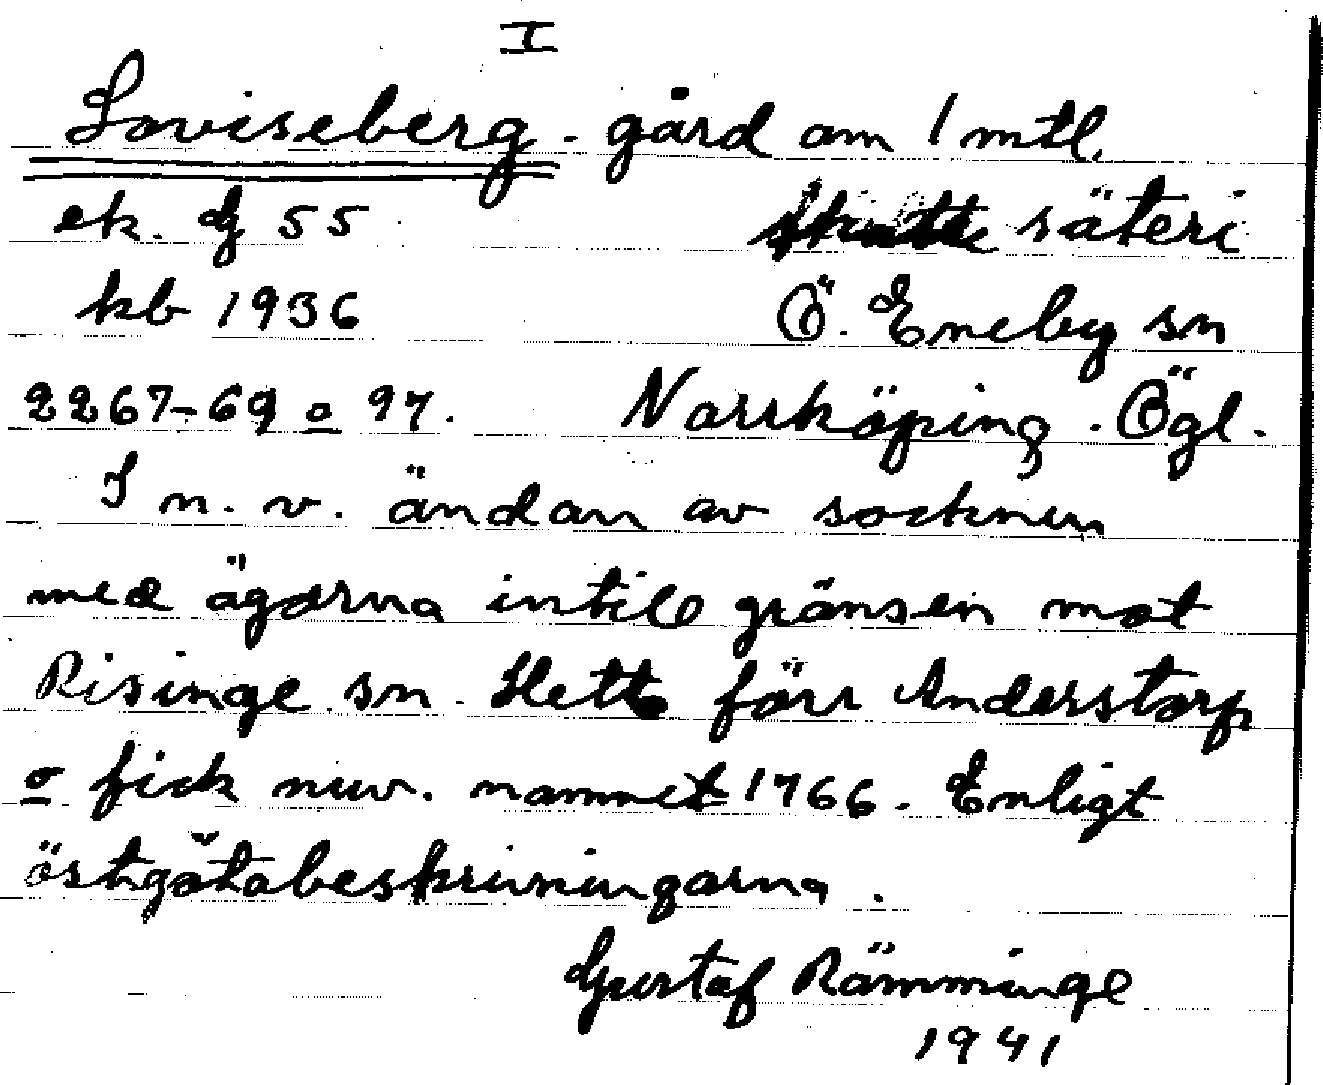 I
Loviseberg - gård om 1 mtl.
ek. dj 55 säteri
kb 1936 Ö. Eneby sn
2267-69 o 97. Norrköping. Ögl.
I n. v. ändan av socknen
med ägorna intill gränsen mot
Risinge sn. Hette förr Anderstorp
o fick nuv. namnet 1766. Enligt
östgötabeskrivningarna.
Gustaf Rämminge
1941